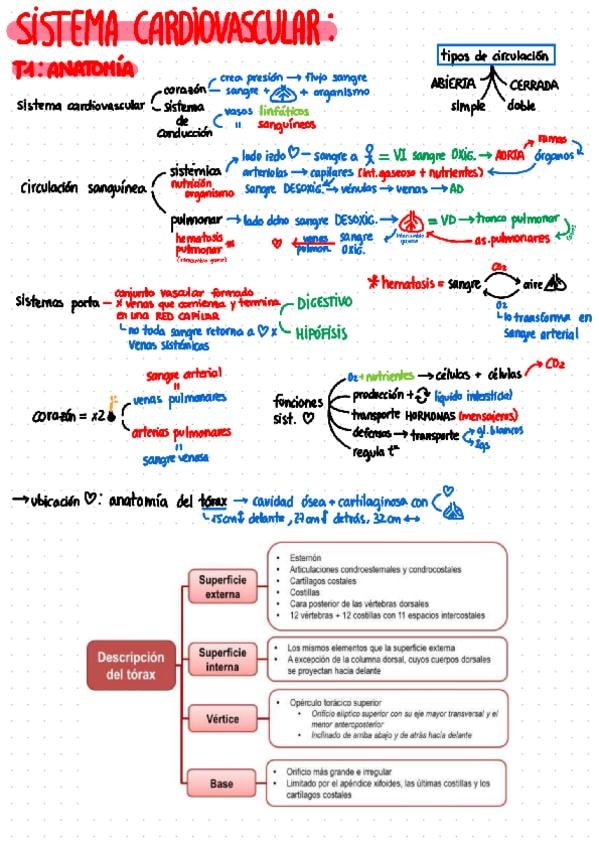 SISTEMA CARDIOVASCULAR:
T.1: ANATOMÍA
tipos de circulación
ABIERTA
CERRADA
simple
doble
sistema cardiovascular
corazón
crea presión → flujo sangre
sangre + + organismo
sistema de conducción
vasos linfáticos
" sanguíneos
circulación sanguínea
sistémica
nutrición organismo
lado izdo ♡ – sangre a = VI sangre OXIG. → AORTA
ramas
órganos
arteriolas → capilares (int. gaseoso + nutrientes)
sangre DESOXIG. → vénulas → venas → AD
pulmonar → lado dcho sangre DESOXIG. → = VD → tronco pulmonar
hematosis pulmonar *
(intercambio gases)
♡ ← venas pulmon. sangre OXIG.
intercambio gases
as. pulmonares
* hematosis = sangre
CO2
aire
O2
lo transforma en sangre arterial
sistemas porta
conjunto vascular formado
x venas que comienza y termina
en una RED CAPILAR
no toda sangre retorna a ♡ x
venas sistémicas
DIGESTIVO
HIPÓFISIS
corazón = x2
sangre arterial
=
venas pulmonares
arterias pulmonares
=
sangre venosa
funciones sist. ♡
O2 + nutrientes → células + células → CO2
producción + líquido intersticial
transporte HORMONAS (mensajeros)
defensas → transporte
gl. blancos
Igs
regula tª
→ ubicación ♡: anatomía del tórax → cavidad ósea + cartilaginosa con
15cm↕ delante, 27cm↕ detrás, 32cm ↔
Descripción del tórax
Superficie externa
• Esternón
• Articulaciones condroesternales y condrocostales
• Cartílagos costales
• Costillas
• Cara posterior de las vértebras dorsales
• 12 vértebras + 12 costillas con 11 espacios intercostales
Superficie interna
• Los mismos elementos que la superficie externa
• A excepción de la columna dorsal, cuyos cuerpos dorsales
se proyectan hacia delante
Vértice
• Opérculo torácico superior
• Orificio elíptico superior con su eje mayor transversal y el
menor anteroposterior
• Inclinado de arriba abajo y de atrás hacia delante
Base
• Orificio más grande e irregular
• Limitado por el apéndice xifoides, las últimas costillas y los
cartílagos costales